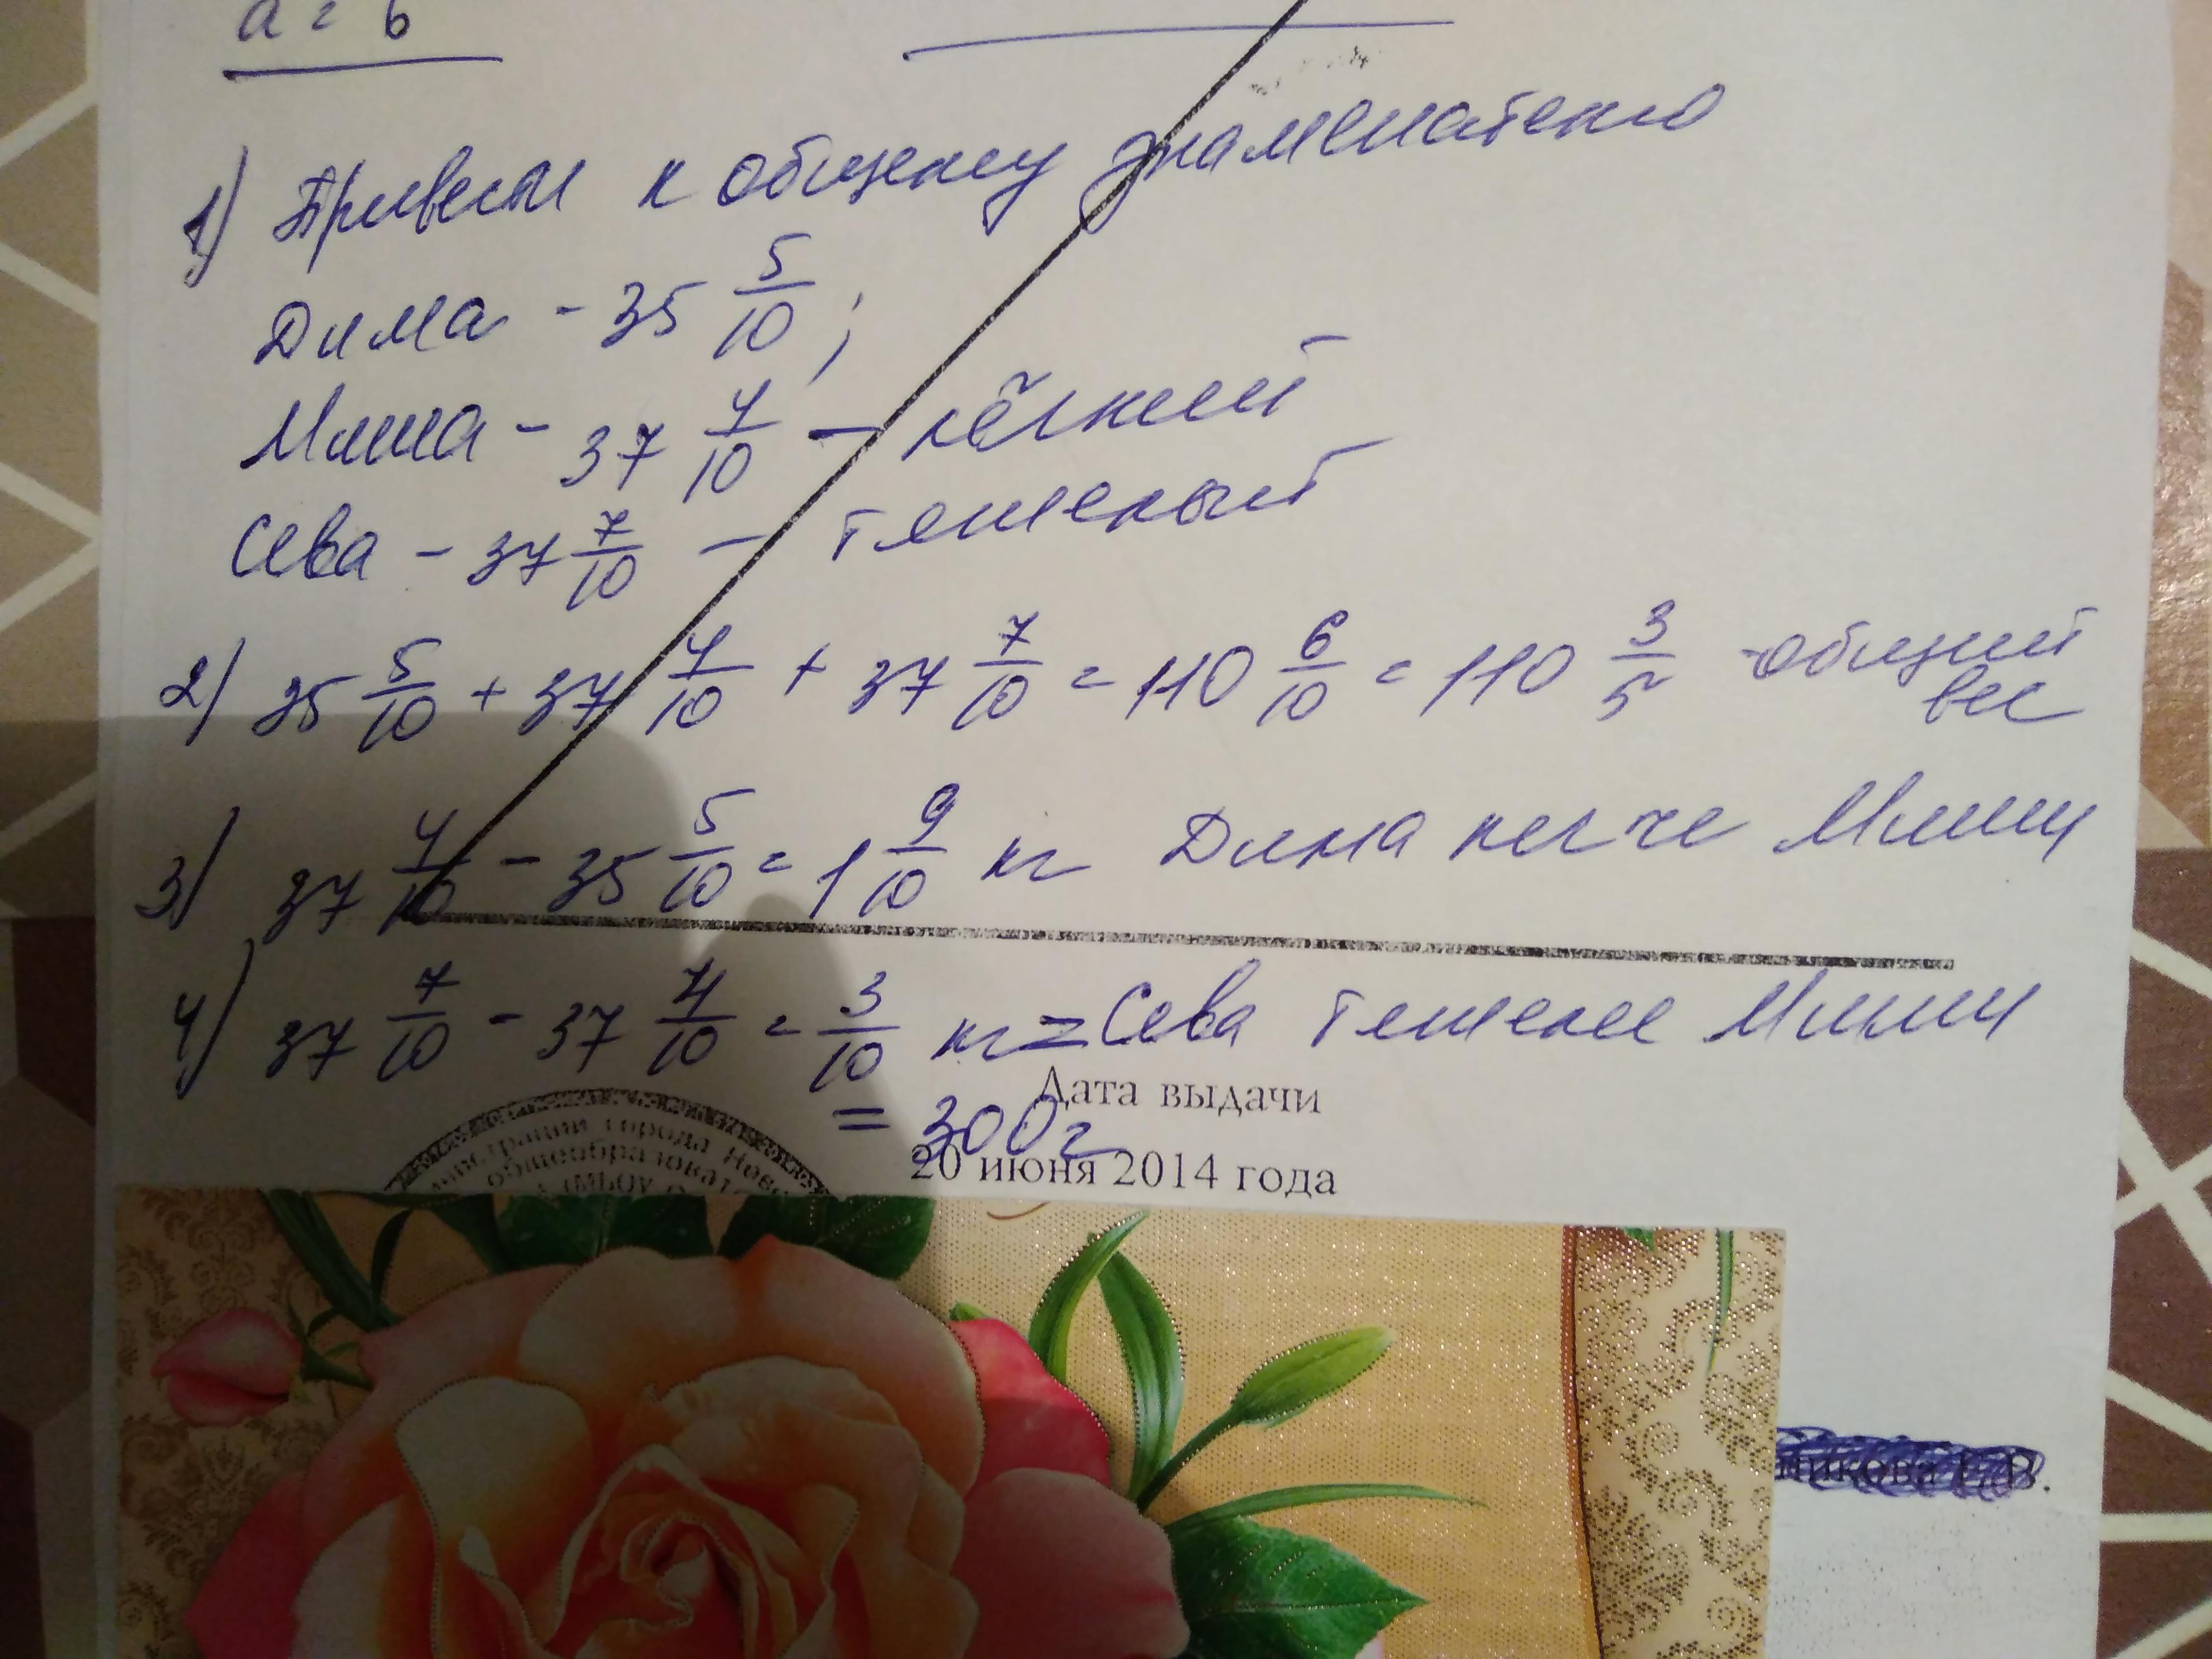 a = 6
1) Привели к общему знаменателю
Дима - 35 5/10 ;
Миша - 37 4/10 - лёгкий
Сева - 37 7/10 - тяжелый
2) 35 5/10 + 37 4/10 + 37 7/10 = 110 6/10 = 110 3/5 - общий
вес
3) 37 4/10 - 35 5/10 = 1 9/10 кг Дима легче Миши
4) 37 7/10 - 37 4/10 = 3/10 кг = Сева тяжелее Миши
= 300 г
Дата выдачи
20 июня 2014 года
города Ново
общеобразоват
(МБОУ
В.